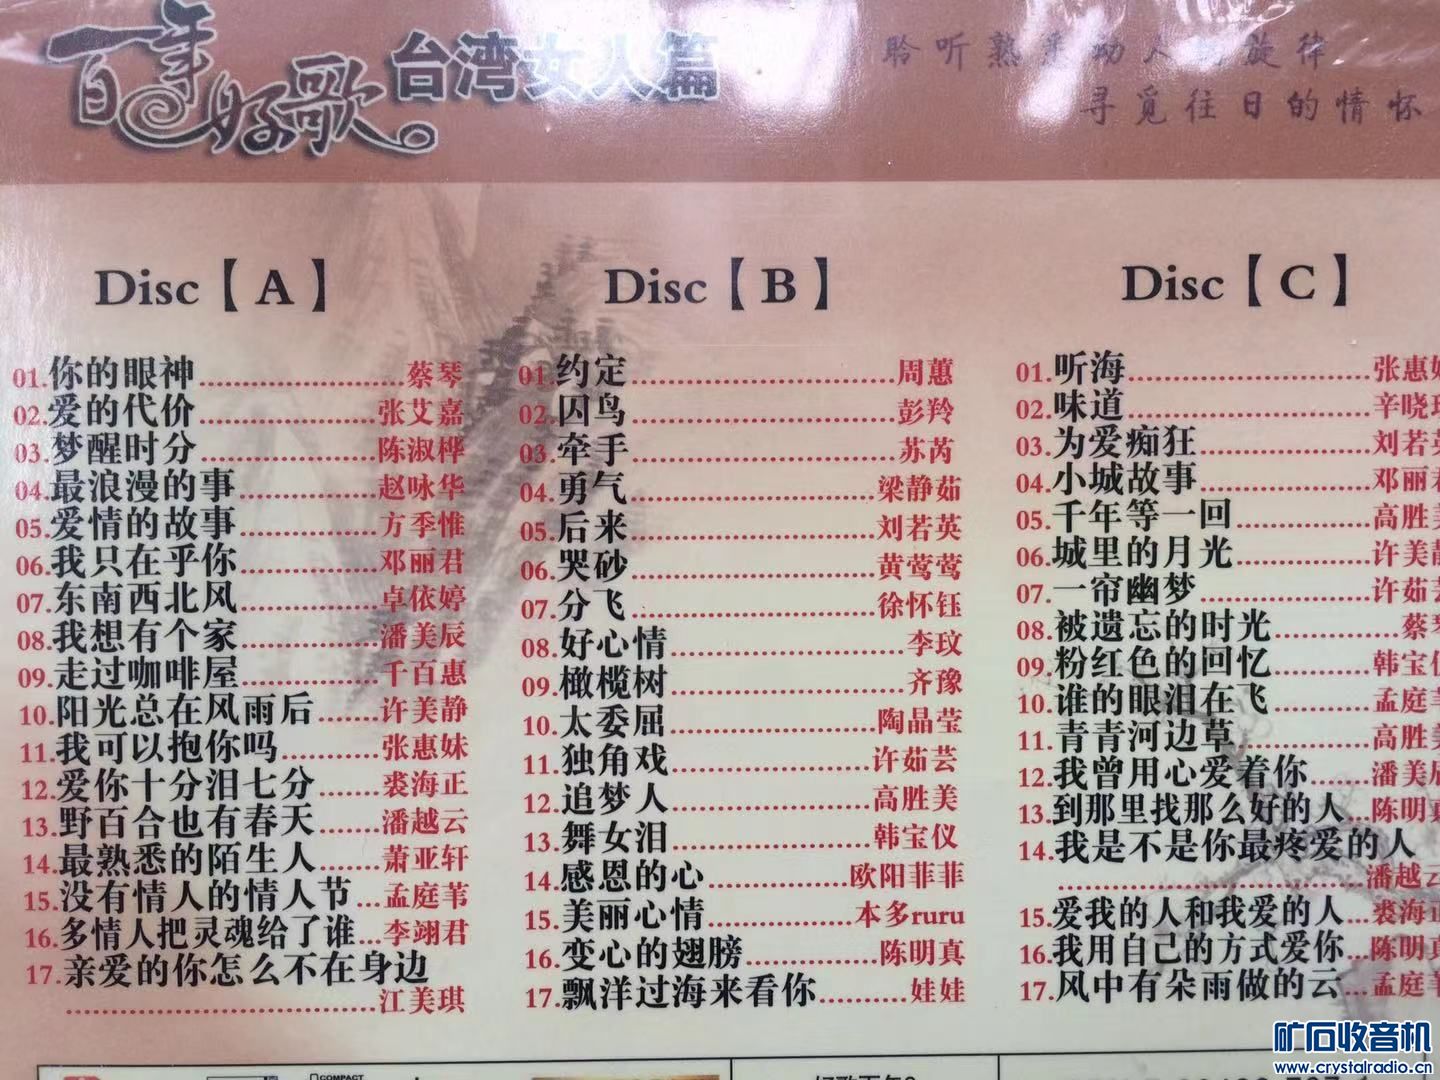 百年好歌 台湾女人篇
聆听熟悉动人的旋律
寻觅往日的情怀
Disc【A】
01.你的眼神 蔡琴
02.爱的代价 张艾嘉
03.梦醒时分 陈淑桦
04.最浪漫的事 赵咏华
05.爱情的故事 方季惟
06.我只在乎你 邓丽君
07.东南西北风 卓依婷
08.我想有个家 潘美辰
09.走过咖啡屋 千百惠
10.阳光总在风雨后 许美静
11.我可以抱你吗 张惠妹
12.爱你十分泪七分 裘海正
13.野百合也有春天 潘越云
14.最熟悉的陌生人 萧亚轩
15.没有情人的情人节 孟庭苇
16.多情人把灵魂给了谁 李翊君
17.亲爱的你怎么不在身边
江美琪
Disc【B】
01.约定 周蕙
02.囚鸟 彭羚
03.牵手 苏芮
04.勇气 梁静茹
05.后来 刘若英
06.哭砂 黄莺莺
07.分飞 徐怀钰
08.好心情 李玟
09.橄榄树 齐豫
10.太委屈 陶晶莹
11.独角戏 许茹芸
12.追梦人 高胜美
13.舞女泪 韩宝仪
14.感恩的心 欧阳菲菲
15.美丽心情 本多ruru
16.变心的翅膀 陈明真
17.飘洋过海来看你 娃娃
Disc【C】
01.听海 张惠
02.味道 辛晓
03.为爱痴狂 刘若英
04.小城故事 邓丽君
05.千年等一回 高胜美
06.城里的月光 许美静
07.一帘幽梦 许茹芸
08.被遗忘的时光 蔡琴
09.粉红色的回忆 韩宝仪
10.谁的眼泪在飞 孟庭苇
11.青青河边草 高胜美
12.我曾用心爱着你 潘美辰
13.到那里找那么好的人 陈明真
14.我是不是你最疼爱的人
潘越云
15.爱我的人和我爱的人 裘海正
16.我用自己的方式爱你 陈明真
17.风中有朵雨做的云 孟庭苇
COMPACT
矿石收音机
www.crystalradio.cn